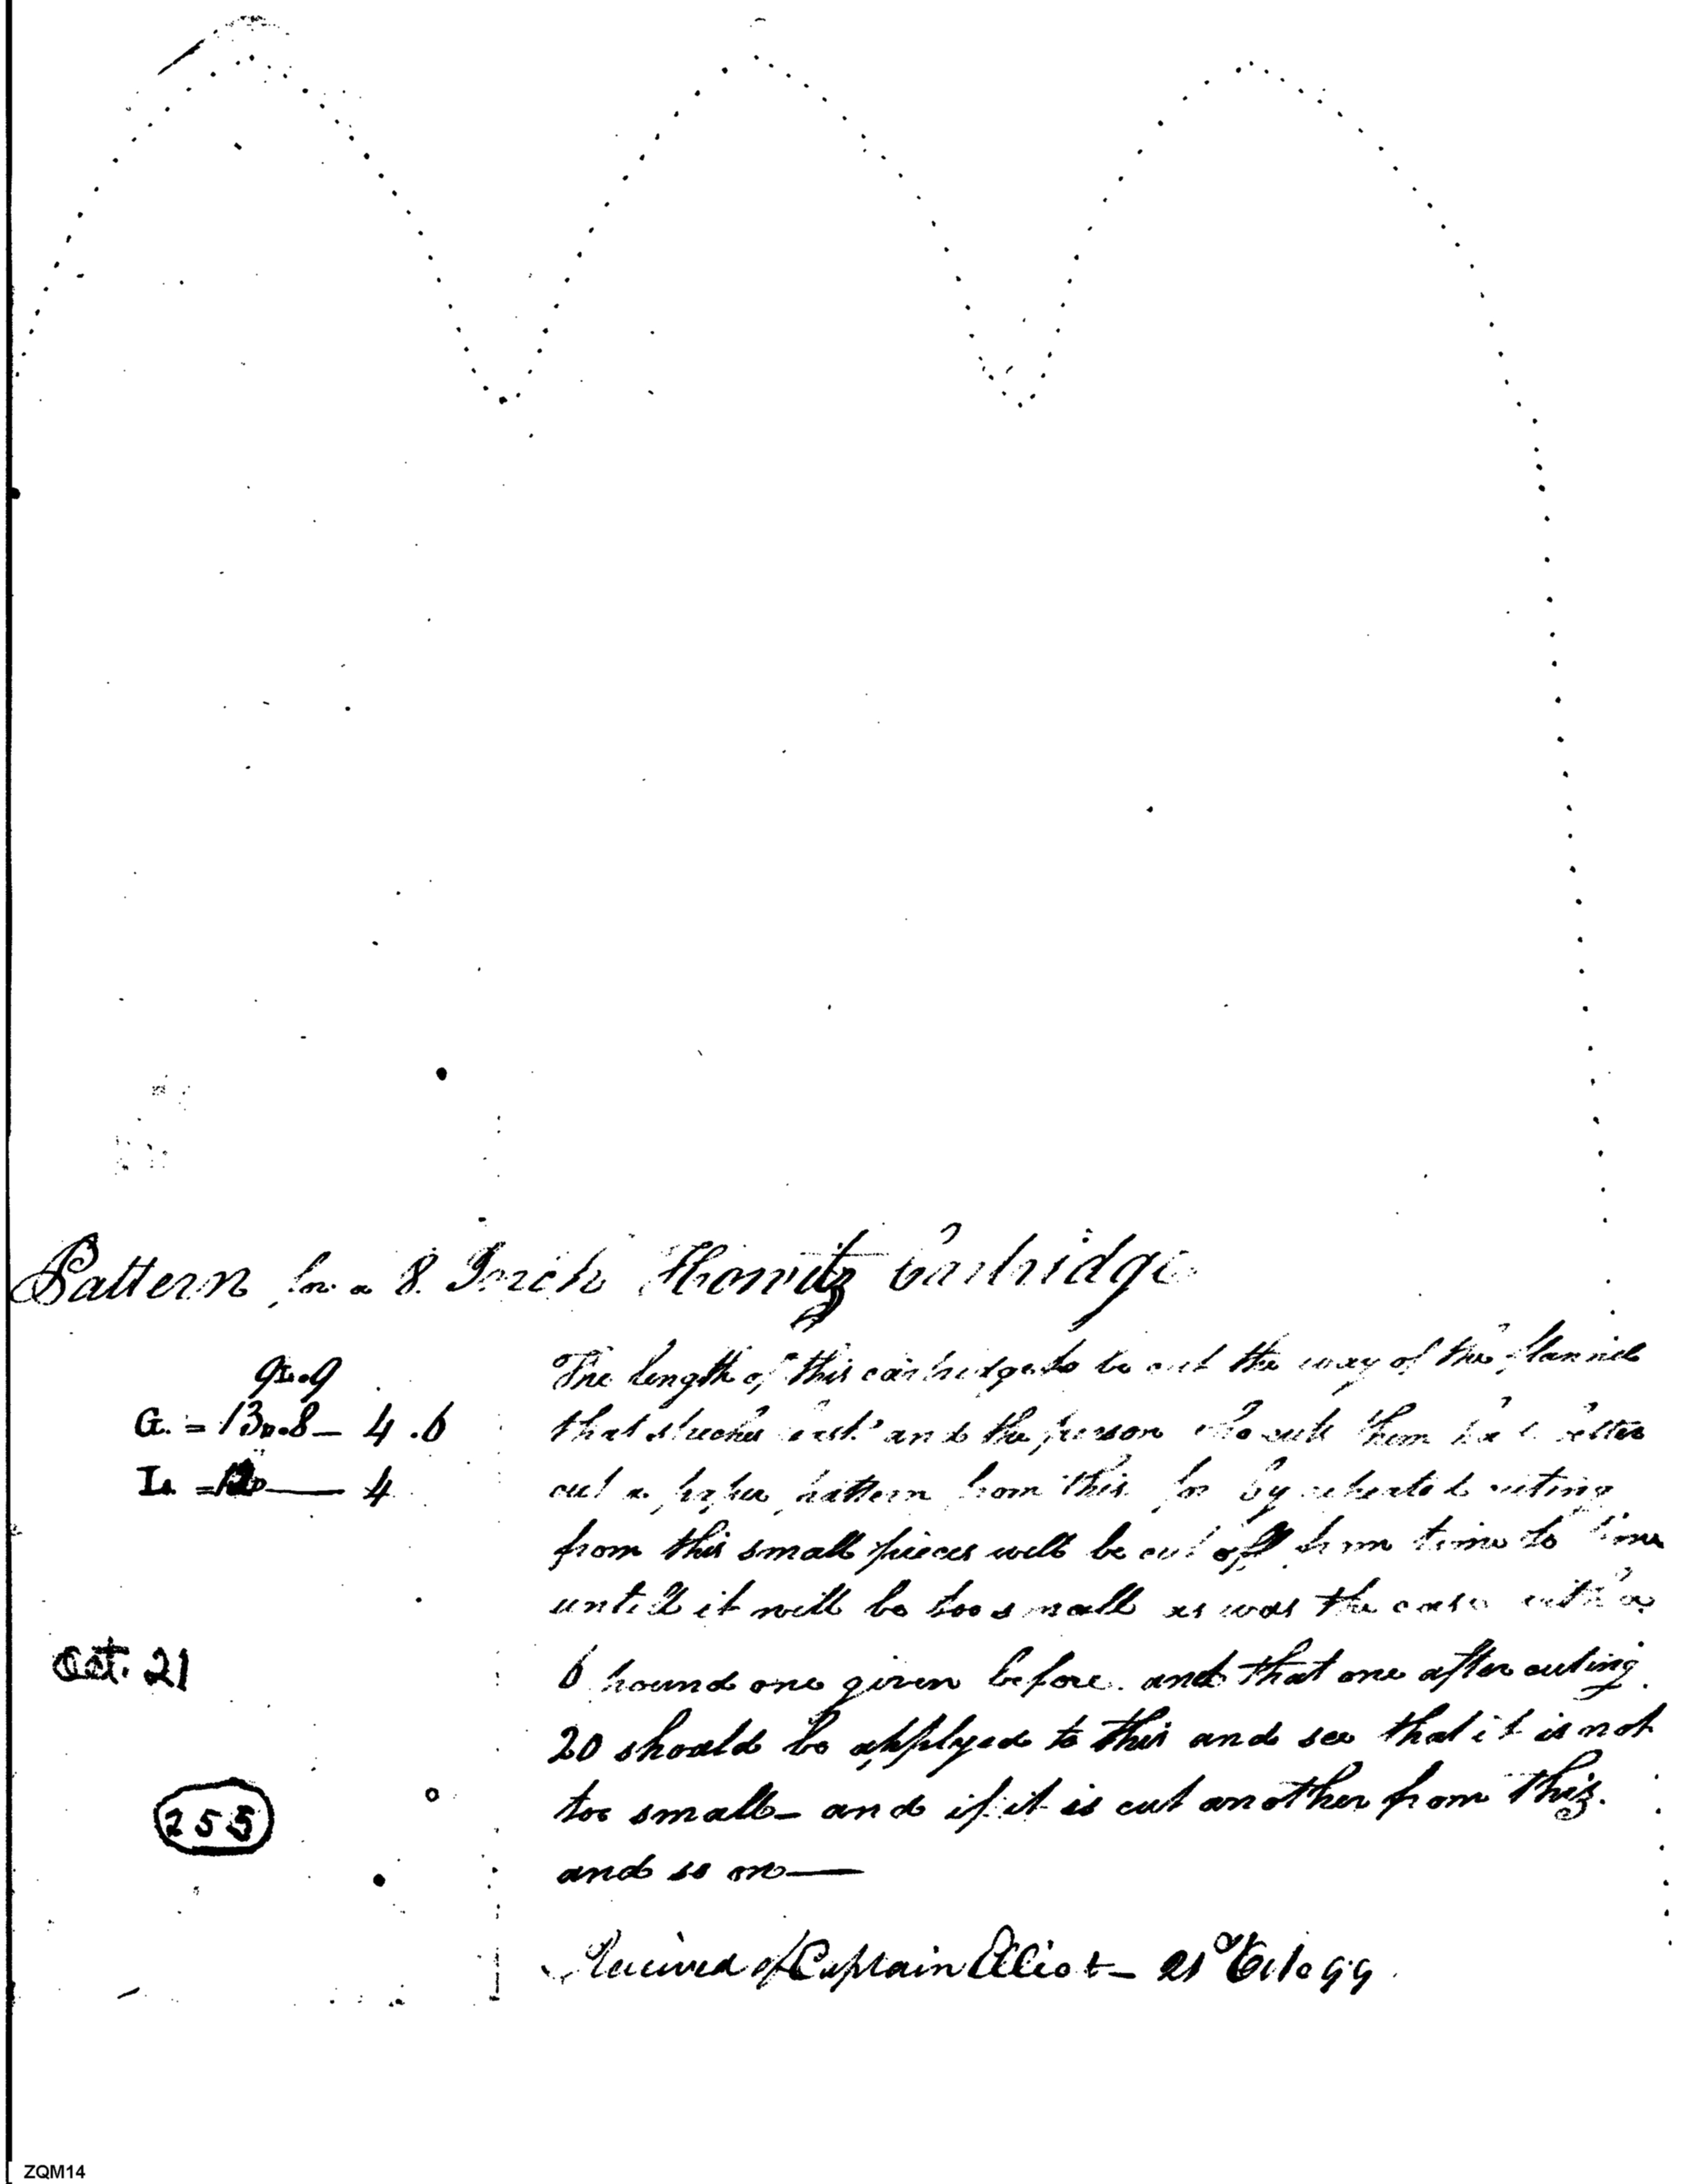 Pattern for a 8 Inch Howitz Cartridge
The length of this cartridge to be cut the way of the flannel
that streches least and the person who cuts them had better
cut a paper pattern from this for by repeated cuting
from this small pieces will be cut off from time to time
untill it will be too small as was the case with a
6 pound one given before. and that one after cuting
20 should be applyed to this and see that it is not
too small - and if it is cut another from this.
and so on —
Received of Captain Elliot - 21 Oct 99
G. = 13..8 - 4.6
4
Oct. 21
255
ZQM14